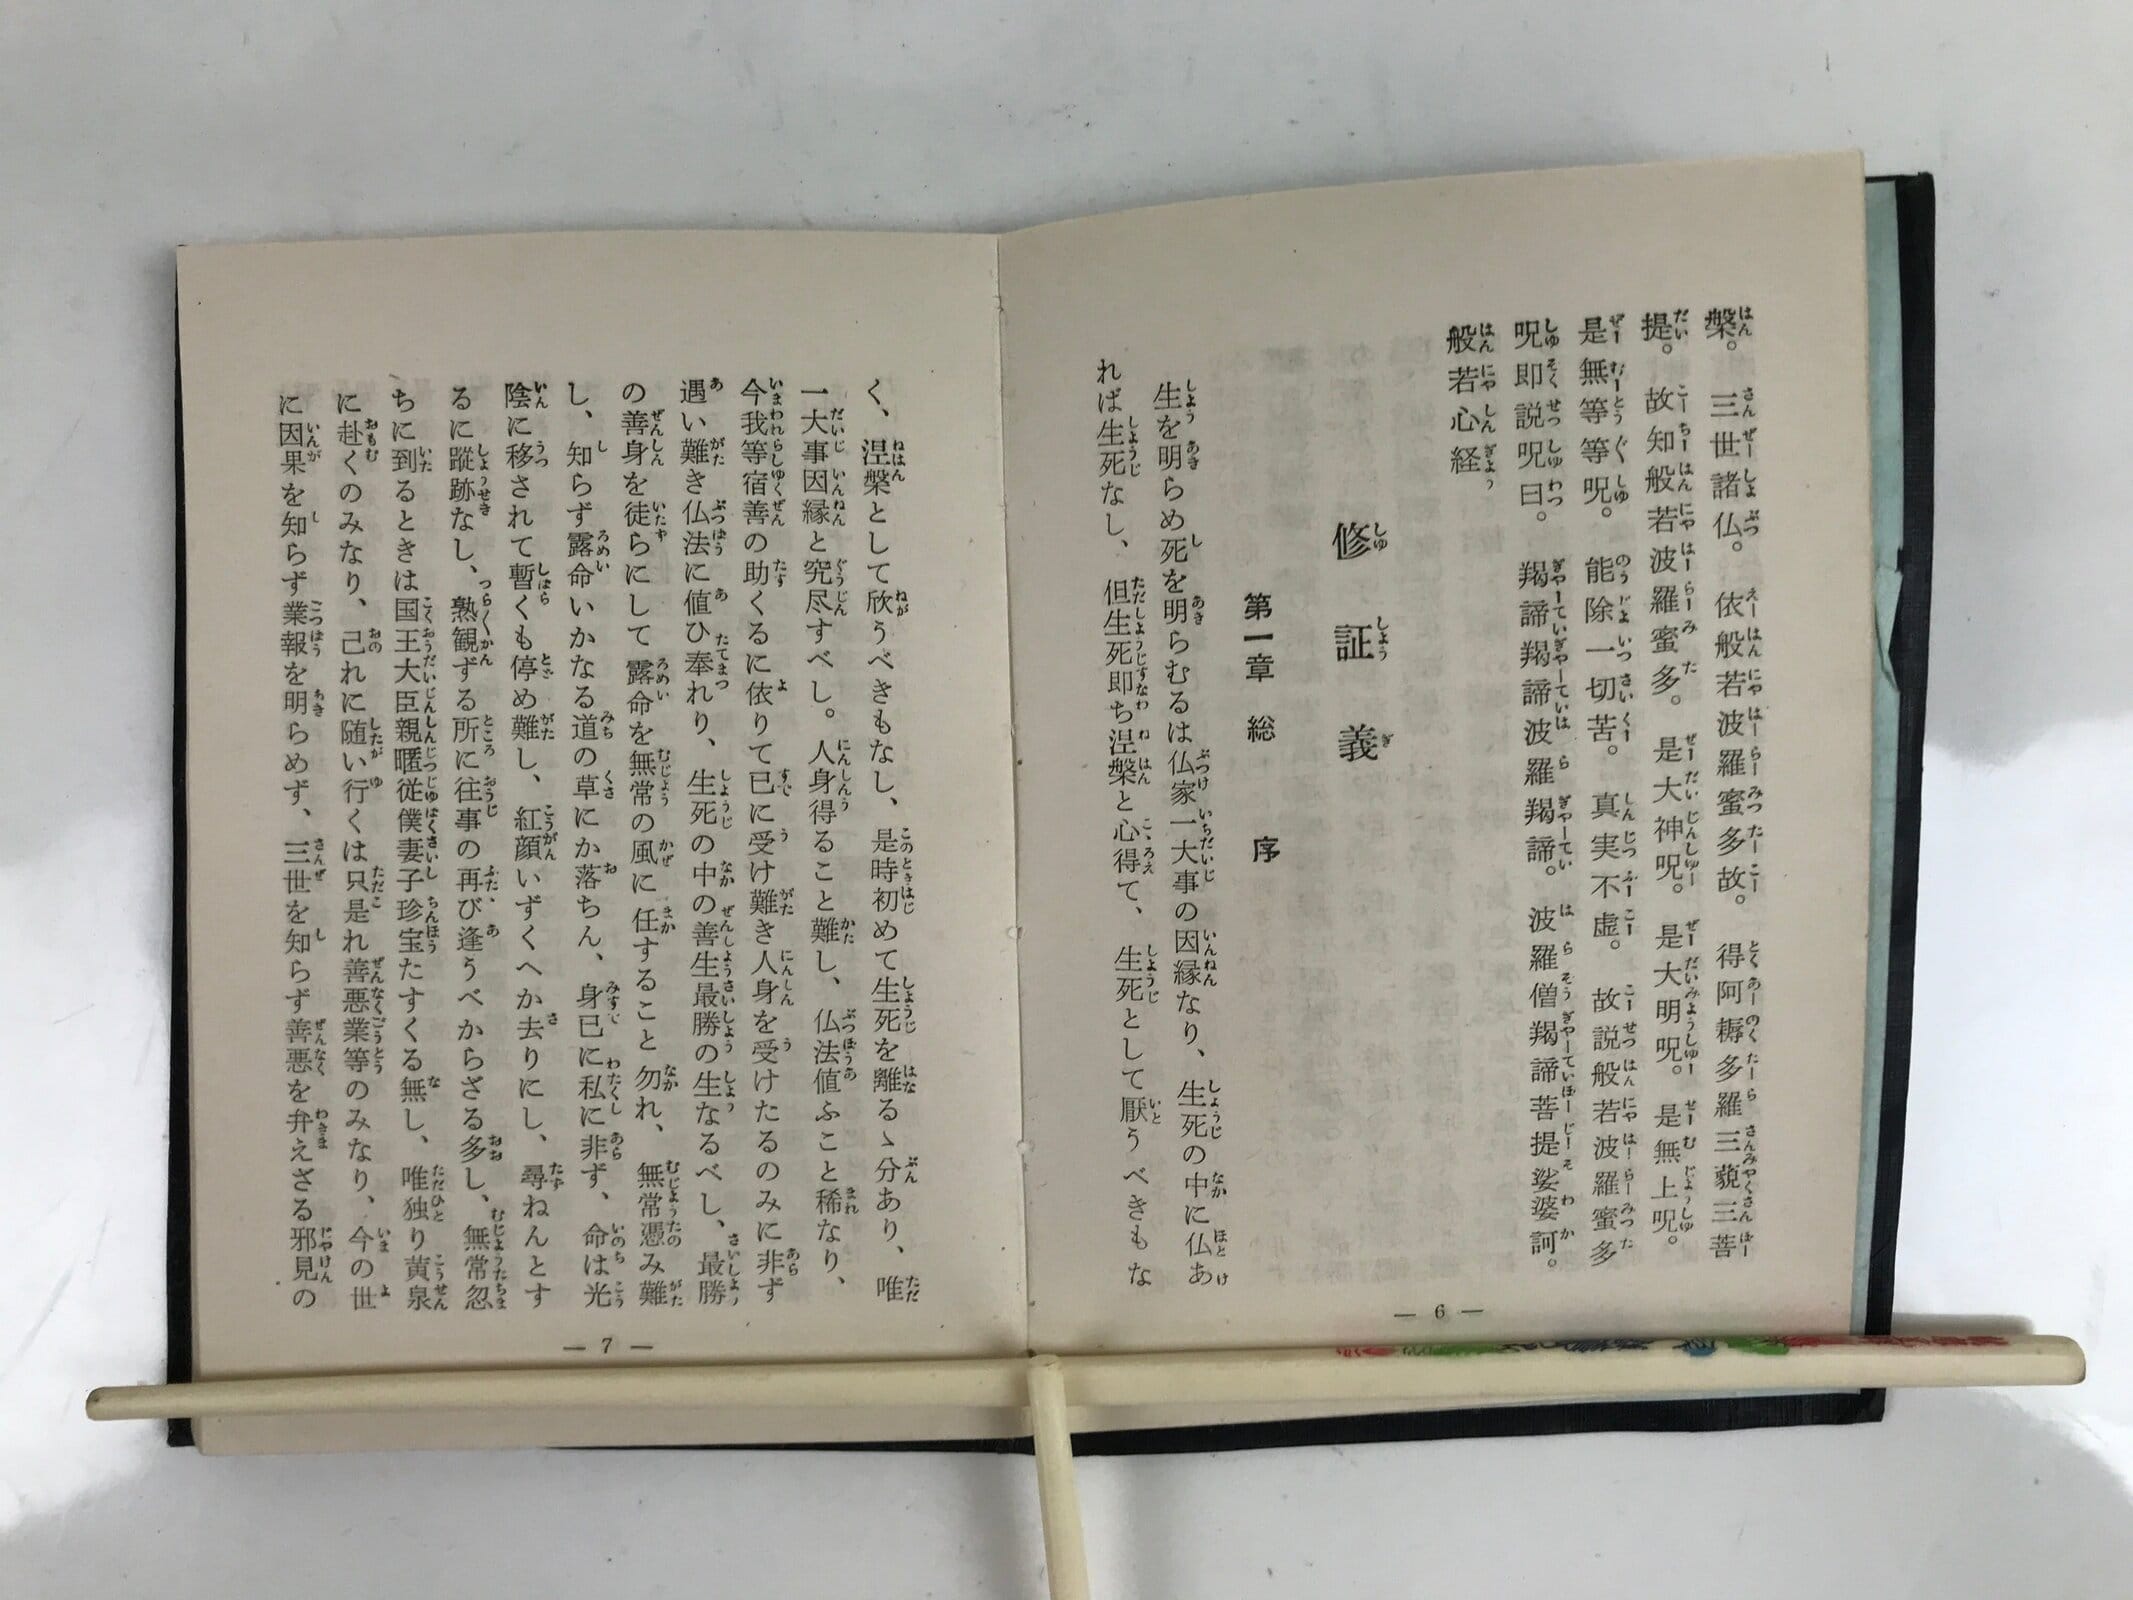 槃。三世諸仏。依般若波羅蜜多故。得阿耨多羅三藐三菩
提。故知般若波羅蜜多。是大神呪。是大明呪。是無上呪。
是無等等呪。能除一切苦。真実不虚。故説般若波羅蜜多
呪即説呪曰。羯諦羯諦波羅羯諦。波羅僧羯諦菩提娑婆訶。
般若心経
修証義
第一章 総序
生を明らめ死を明らむるは仏家一大事の因縁なり、生死の中に仏あ
れば生死なし、但生死即ち涅槃と心得て、生死として厭うべきもな
— 6 —
く、涅槃として欣うべきもなし、是時初めて生死を離るゝ分あり、唯
一大事因縁と究尽すべし。人身得ること難し、仏法値ふこと稀なり、
今我等宿善の助くるに依りて已に受け難き人身を受けたるのみに非ず
遇い難き仏法に値ひ奉れり、生死の中の善生最勝の生なるべし、最勝
の善身を徒らにして露命を無常の風に任すること勿れ、無常憑み難
し、知らず露命いかなる道の草にか落ちん、身已に私に非ず、命は光
陰に移されて暫くも停め難し、紅顔いずくへか去りにし、尋ねんとす
るに蹤跡なし、熟観ずる所に往事の再び逢うべからざる多し、無常忽
ちに到るときは国王大臣親暱従僕妻子珍宝たすくる無し、唯独り黄泉
に赴くのみなり、己れに随い行くは只是れ善悪業等のみなり、今の世
に因果を知らず業報を明らめず、三世を知らず善悪を弁えざる邪見の
— 7 —